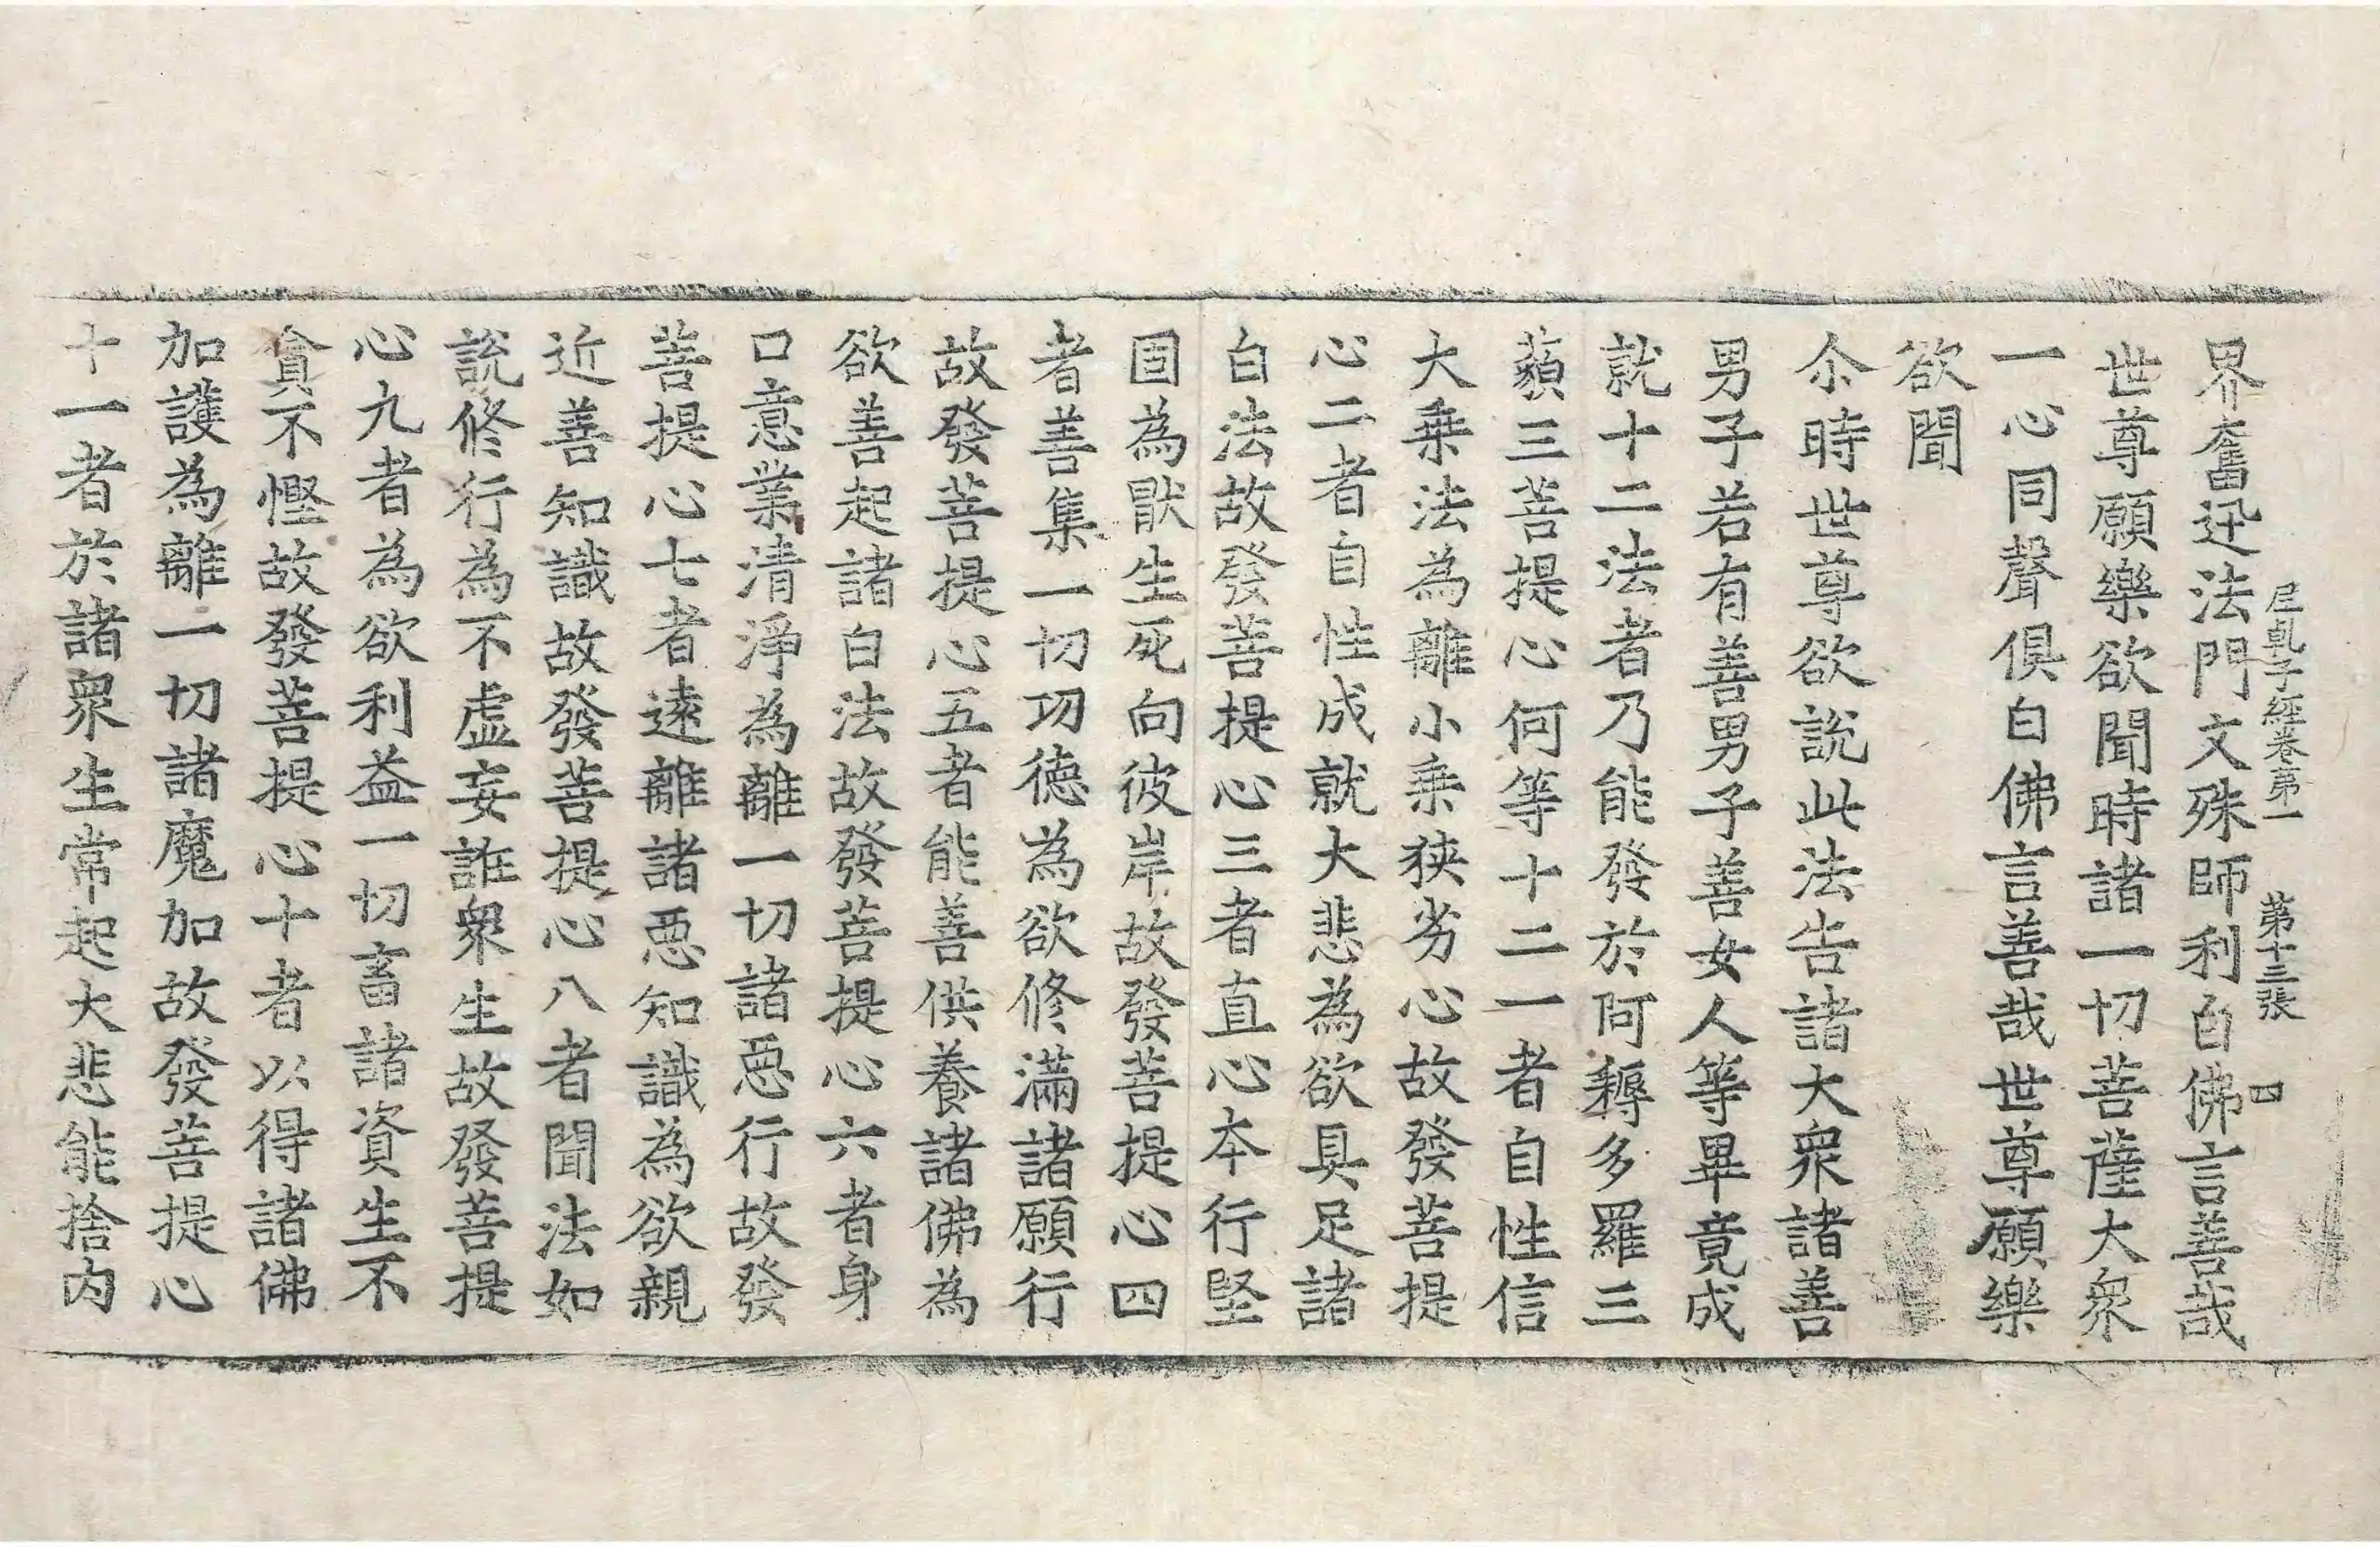 尼乹子經卷第一　第十三張　四
界奮迅法門文殊師利白佛言善哉
世尊願樂欲聞時諸一切菩薩大衆
一心同聲俱白佛言善哉世尊願樂
欲聞
尒時世尊欲說此法告諸大衆諸善
男子若有善男子善女人等畢竟成
就十二法者乃能發於阿耨多羅三
藐三菩提心何等十二一者自性信
大乗法為離小乗狹劣心故發菩提
心二者自性成就大悲為欲具足諸
白法故發菩提心三者直心本行堅
固為猒生死向彼岸故發菩提心四
者善集一切功德為欲修滿諸願行
故發菩提心五者能善供養諸佛為
欲善起諸白法故發菩提心六者身
口意業清淨為離一切諸惡行故發
菩提心七者遠離諸惡知識為欲親
近善知識故發菩提心八者聞法如
說修行為不虛妄誑衆生故發菩提
心九者為欲利益一切畜諸資生不
貪不慳故發菩提心十者以得諸佛
加護為離一切諸魔加故發菩提心
十一者於諸衆生常起大悲能捨内